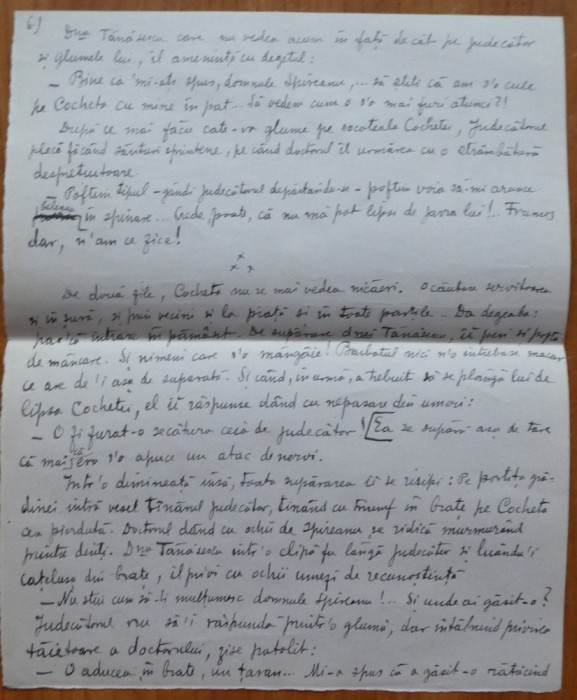 6)
Dna Tănăsescu care nu vedea acum în față decât pe judecător
și glumele lui, îl amenință cu degetul:
— Bine că mi-ați spus, domnule Spireanu,... să știți că am s'o culc
pe Cocheta cu mine în pat... Să vedem cum o s'o mai furi atunci?!
După ce mai făcu cate-va glume pe socoteala Cochetei, Judecătorul
plecă făcând sărituri sprintene, pe când doctorul îl urmărea cu o strâmbătură
desprețuitoare.
— Poftim tipul - gândi judecătorul depărtându-se - poftim voia să-mi arunce
în spinare... Crede poate, că nu mă pot lipsi de javra lui!.. Frumos
dar, n'am ce zice!
x x x
De două zile, Cocheta nu se mai vedea nicăeri. O căutase servitoarea
și în șură, și prin vecini și la piață și în toate părțile. Da degeaba:
parcă intrase în pământ. De supărare dnei Tănăsescu, îi peri și pofta
de mâncare. Și nimeni care s'o mângâie! Barbatul nici n'o întrebase macar
ce are de-i așa de suparată. Și când, în urmă, a trebuit să se plângă lui de
lipsa Cochetei, el îi răspunse dând cu nepasare din umeri:
— O fi furat-o secătura ceia de judecător! Ea se supără așa de tare
că mai s'o apuce un atac de nervi.
Într'o dimineață însă, toată supărarea i se risipi: Pe portița gră-
dinei intră vesel tînărul judecător, ținând cu triumf în brate pe Cocheta
cea pierdută. Doctorul dând cu ochii de Spireanu se ridică murmurând
printre dinți. Dna Tănăsescu într'o clipă fu lângă judecător și luându-i
cațelușa din brate, îl privi cu ochii umezi de recunoștință
— Nu știu cum să-ți mulțumesc domnule Spireanu!... Și unde ai găsit-o?
Judecătorul vru să-i răspundă printr'o glumă, dar întâlnind privirea
tăietoare a doctorului, zise potolit:
— O aducea în brate, un țaran... Mi-a spus că a găsit-o rătăcind